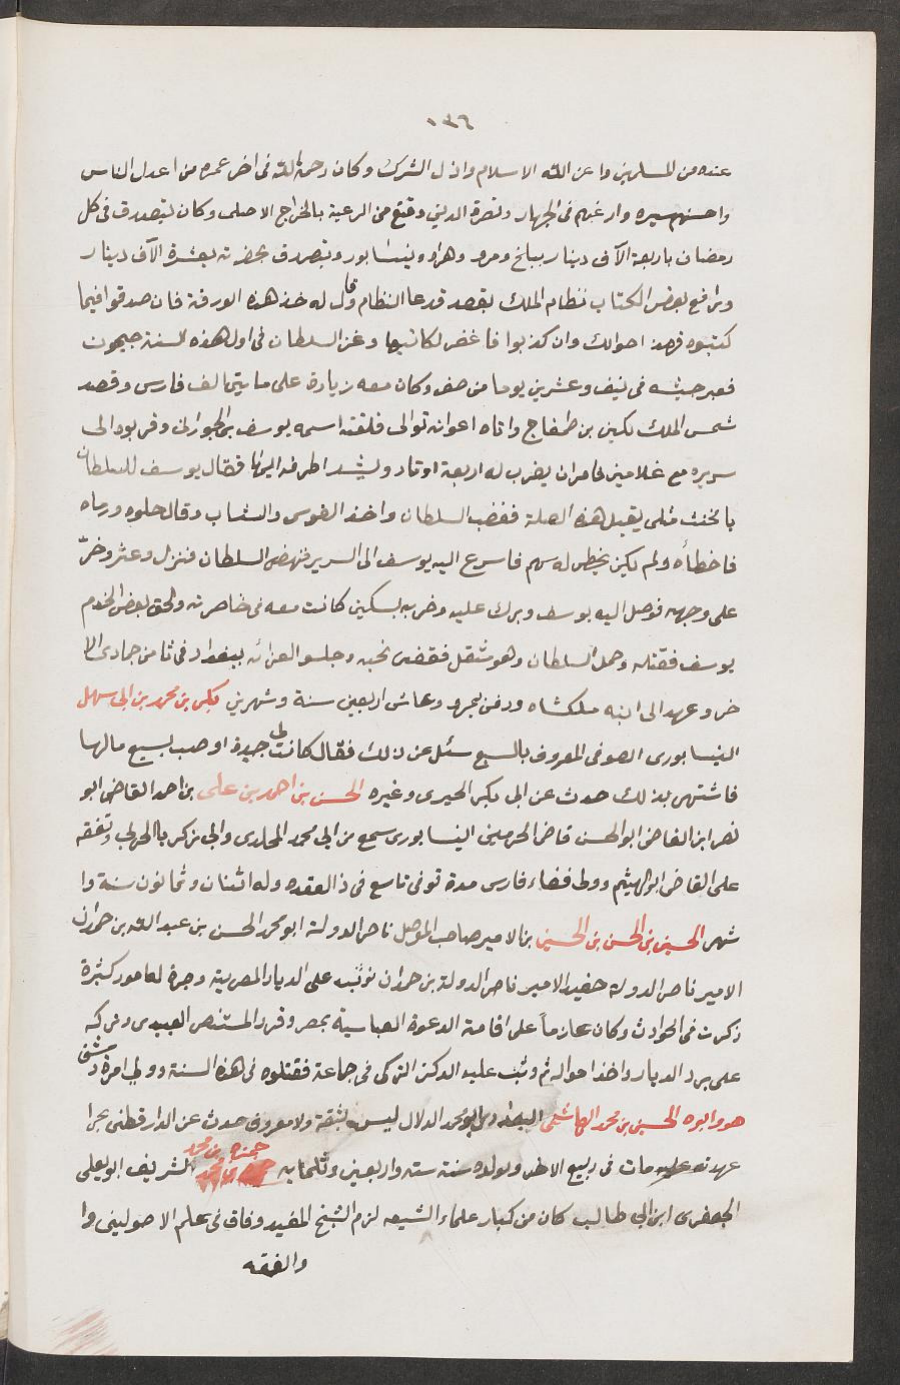 ١٣٦
عنده من المسلمين واعز الله الاسلام واذل الشرك وكان رحمه الله فى اخر عمره من اعدل الناس
واحسنهم سيره وارغبهم فى الجهاد ونصرة الدين وقنع من الرعية بالخراج الاصلى وكان يتصدق فى كل
رمضان باربعة الآف دينار ببلخ ومرو وهراه ونيسابور ويتصدق بحضرته بعشرة الآف دينار
ورافع بعض الكتاب نظام الملك بقصه فدعا النظام وقال له خذ هذه الورقة فان صدقوا فيما
كتبوه فهذب احوالك وان كذبوا فاغفر لكاتبها وغزا السلطان فى اول هذه السنة جيحون
فعبر جيشه فى نيف وعشرين يوما من صفر وكان معه زيادة على مايتى الف فارس وقصد
شمس الملك تكين بن طمغاج واتاه اعوانه توالى قلعة اسمه يوسف الخوارزمى وقربوه الى
سريره مع غلامين فامر ان يضرب له اربعة اوتاد ويشد اطرافه اليها فقال يوسف للسلطان
يا مخنث مثلى يقتل هذه القتلة فغضب السلطان واخذ القوس والنشاب وقال خلوه ورماه
فاخطأه ولم يكن يخطى له سهم فاسرع اليه يوسف الى السرير فنهض السلطان فنزل وعثر وخرّ
على وجهه فوصل اليه يوسف وبرك عليه وضربه بسكين كانت معه فى خاصرته ولحق بعض الخدم
يوسف فقتله وحمل السلطان وهو مثقل فقضى نحبه وجلسوا لعزائه ببغداد فى ثامن جمادى الا
خر وعهد الى ابنه ملكشاه ودفن بمرو وعاش اربعين سنة وشهرين بكر بن محمد بن ابى سهل
النيسابورى الصوفى المعروف بالسبع سئل عن ذلك فقال كانت لى جدة اوصت بسبع مالها
فاشتهر بذلك حدث عن ابى بكر الحيرى وغيره الحسن بن احمد بن على بن احمد القاضى ابو
نصر ابن القاضى ابو الحسن قاضى الحرمين النيسابورى سمع من ابى محمد المخلدى وابى زكريا الحربى وتفقه
على القاضى ابو الهيثم وولى قضاء فارس مدة توفى تاسع فى ذا لقعده وله اثنان وثمانون سنة وا
شهر الحسين بن الحسن بن الحسين بن الامير صاحب الموصل ناصر الدولة ابو محمد الحسن بن عبد الله بن حمدان
الامير ناصر الدولة حفيد الامير ناصر الدولة بن حمدان توثب على الديار المصرية وجرت له امور كثيرة
ذكرت فى الحوادث وكان عازماً على اقامة الدعوة العباسية بمصر وقهر المستنصر العبيدى وتركه
على برد الديار واخذ امواله ثم وثب عليه الدكز التركى فى جماعة فقتلوه فى هذه السنة وولى امرة دمشق
هو وابوه الحسين بن محمد الهاشمى البغدادى ابو محمد الدلال ليس بثقة ولا معروف حدث عن الدارقطنى بجزا
عهدته عليه مات فى ربيع الاخر ومولده سنة سته واربعين وثلثمايه حمزه بن محمد الشريف ابو يعلى
الجعفرى ابن ابى طالب كان من كبار علماء الشيعه لزم الشيخ المفيد وفاق فى علم الاصولين وا
والفقه